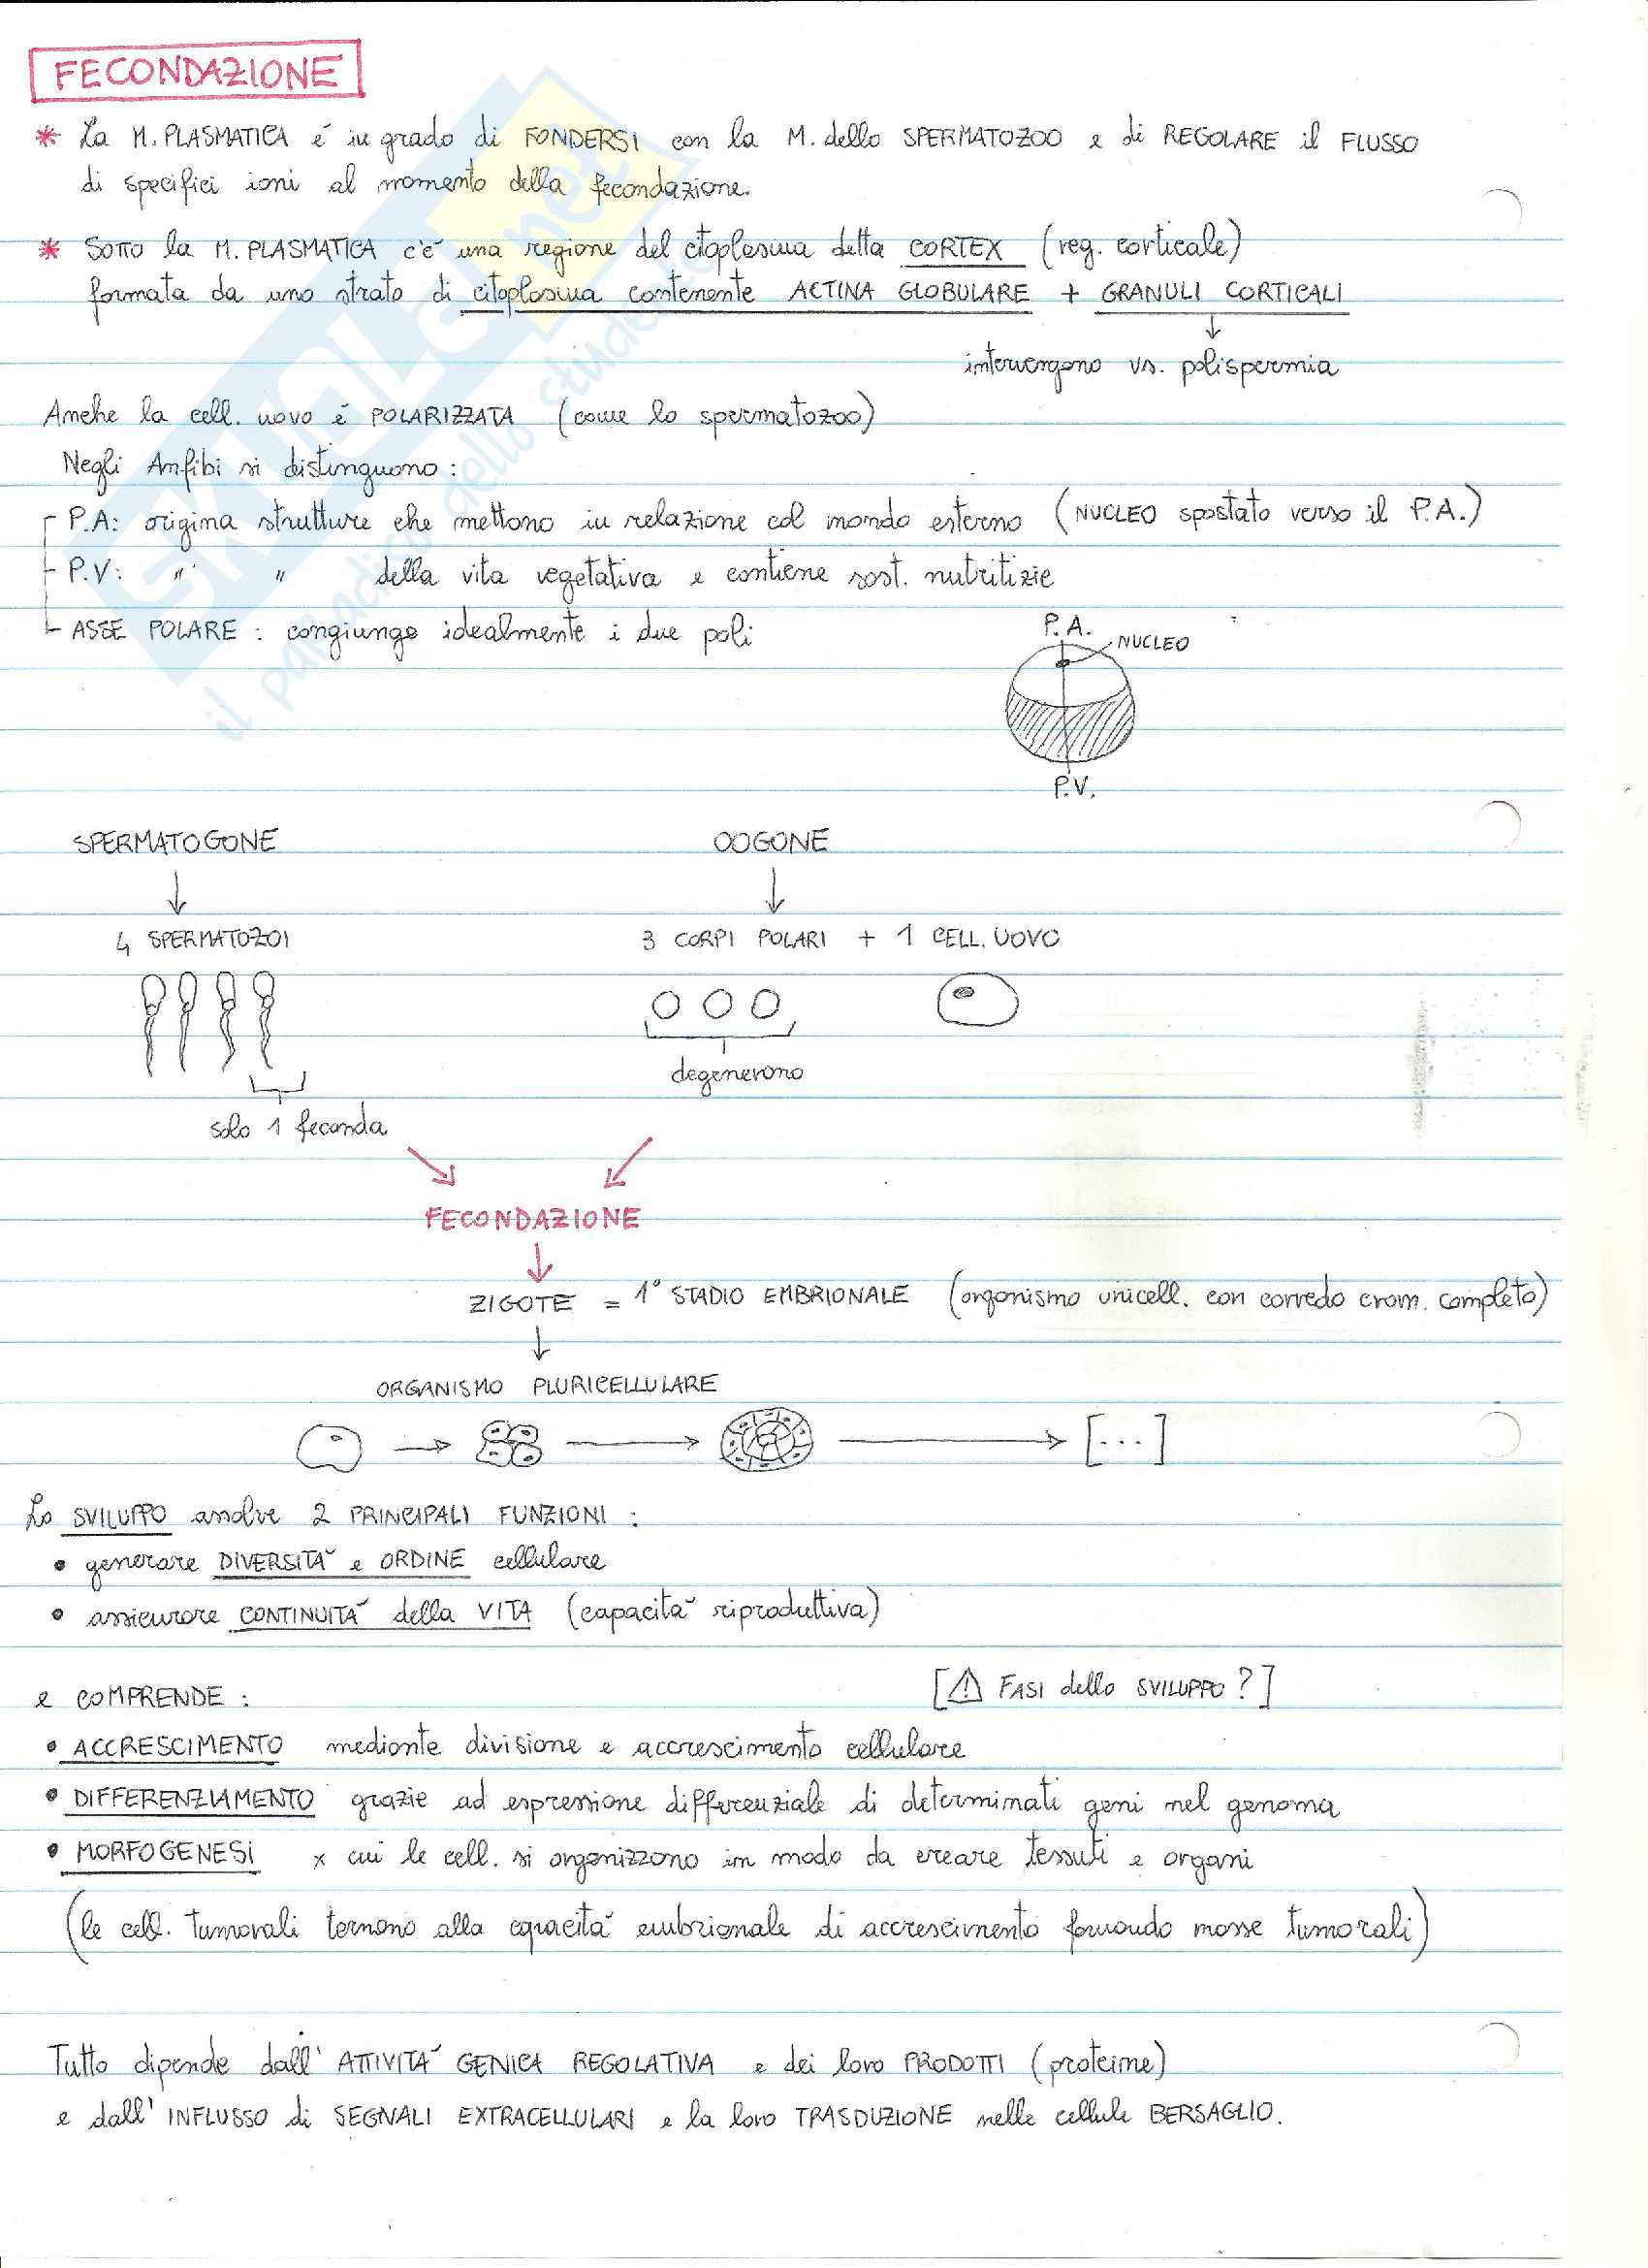 FECONDAZIONE
* La M. PLASMATICA é in grado di FONDERSI con la M. dello SPERMATOZOO e di REGOLARE il FLUSSO
di specifici ioni al momento della fecondazione.
* SOTTO la M. PLASMATICA c'é una regione del citoplasma detta CORTEX (reg. corticale)
formata da uno strato di citoplasma contenente ACTINA GLOBULARE + GRANULI CORTICALI
↓
intervengono vs. polispermia
Anche la cell. uovo é POLARIZZATA (come lo spermatozoo)
Negli Anfibi si distinguono:
P.A: origina strutture che mettono in relazione col mondo esterno (NUCLEO spostato verso il P.A.)
P.V: " " della vita vegetativa e contiene sost. nutritizie
ASSE POLARE: congiunge idealmente i due poli
P.A.
NUCLEO
P.V.
SPERMATOGONE OOGONE
↓ ↓
4 SPERMATOZOI 3 CORPI POLARI + 1 CELL. UOVO
degenerono
solo 1 feconda
FECONDAZIONE
↓
ZIGOTE = 1° STADIO EMBRIONALE (organismo unicell. con corredo crom. completo)
↓
ORGANISMO PLURICELLULARE
→ → → [...]
Lo SVILUPPO assolve 2 PRINCIPALI FUNZIONI:
• generare DIVERSITÁ e ORDINE cellulare
• assicurare CONTINUITÁ della VITA (capacitá riproduttiva)
[⚠ FASI dello SVILUPPO?]
e COMPRENDE:
• ACCRESCIMENTO mediante divisione e accrescimento cellulare
• DIFFERENZIAMENTO grazie ad espressione differenziale di determinati geni nel genoma
• MORFOGENESI x cui le cell. si organizzono in modo da creare tessuti e organi
(le cell. tumorali tornano alla capacitá embrionale di accrescimento formando masse tumorali)
Tutto dipende dall' ATTIVITÁ GENICA REGOLATIVA e dei loro PRODOTTI (proteine)
e dall' INFLUSSO di SEGNALI EXTRACELLULARI e la loro TRASDUZIONE nelle cellule BERSAGLIO.
SKUOLA.net
il paradiso dello studente